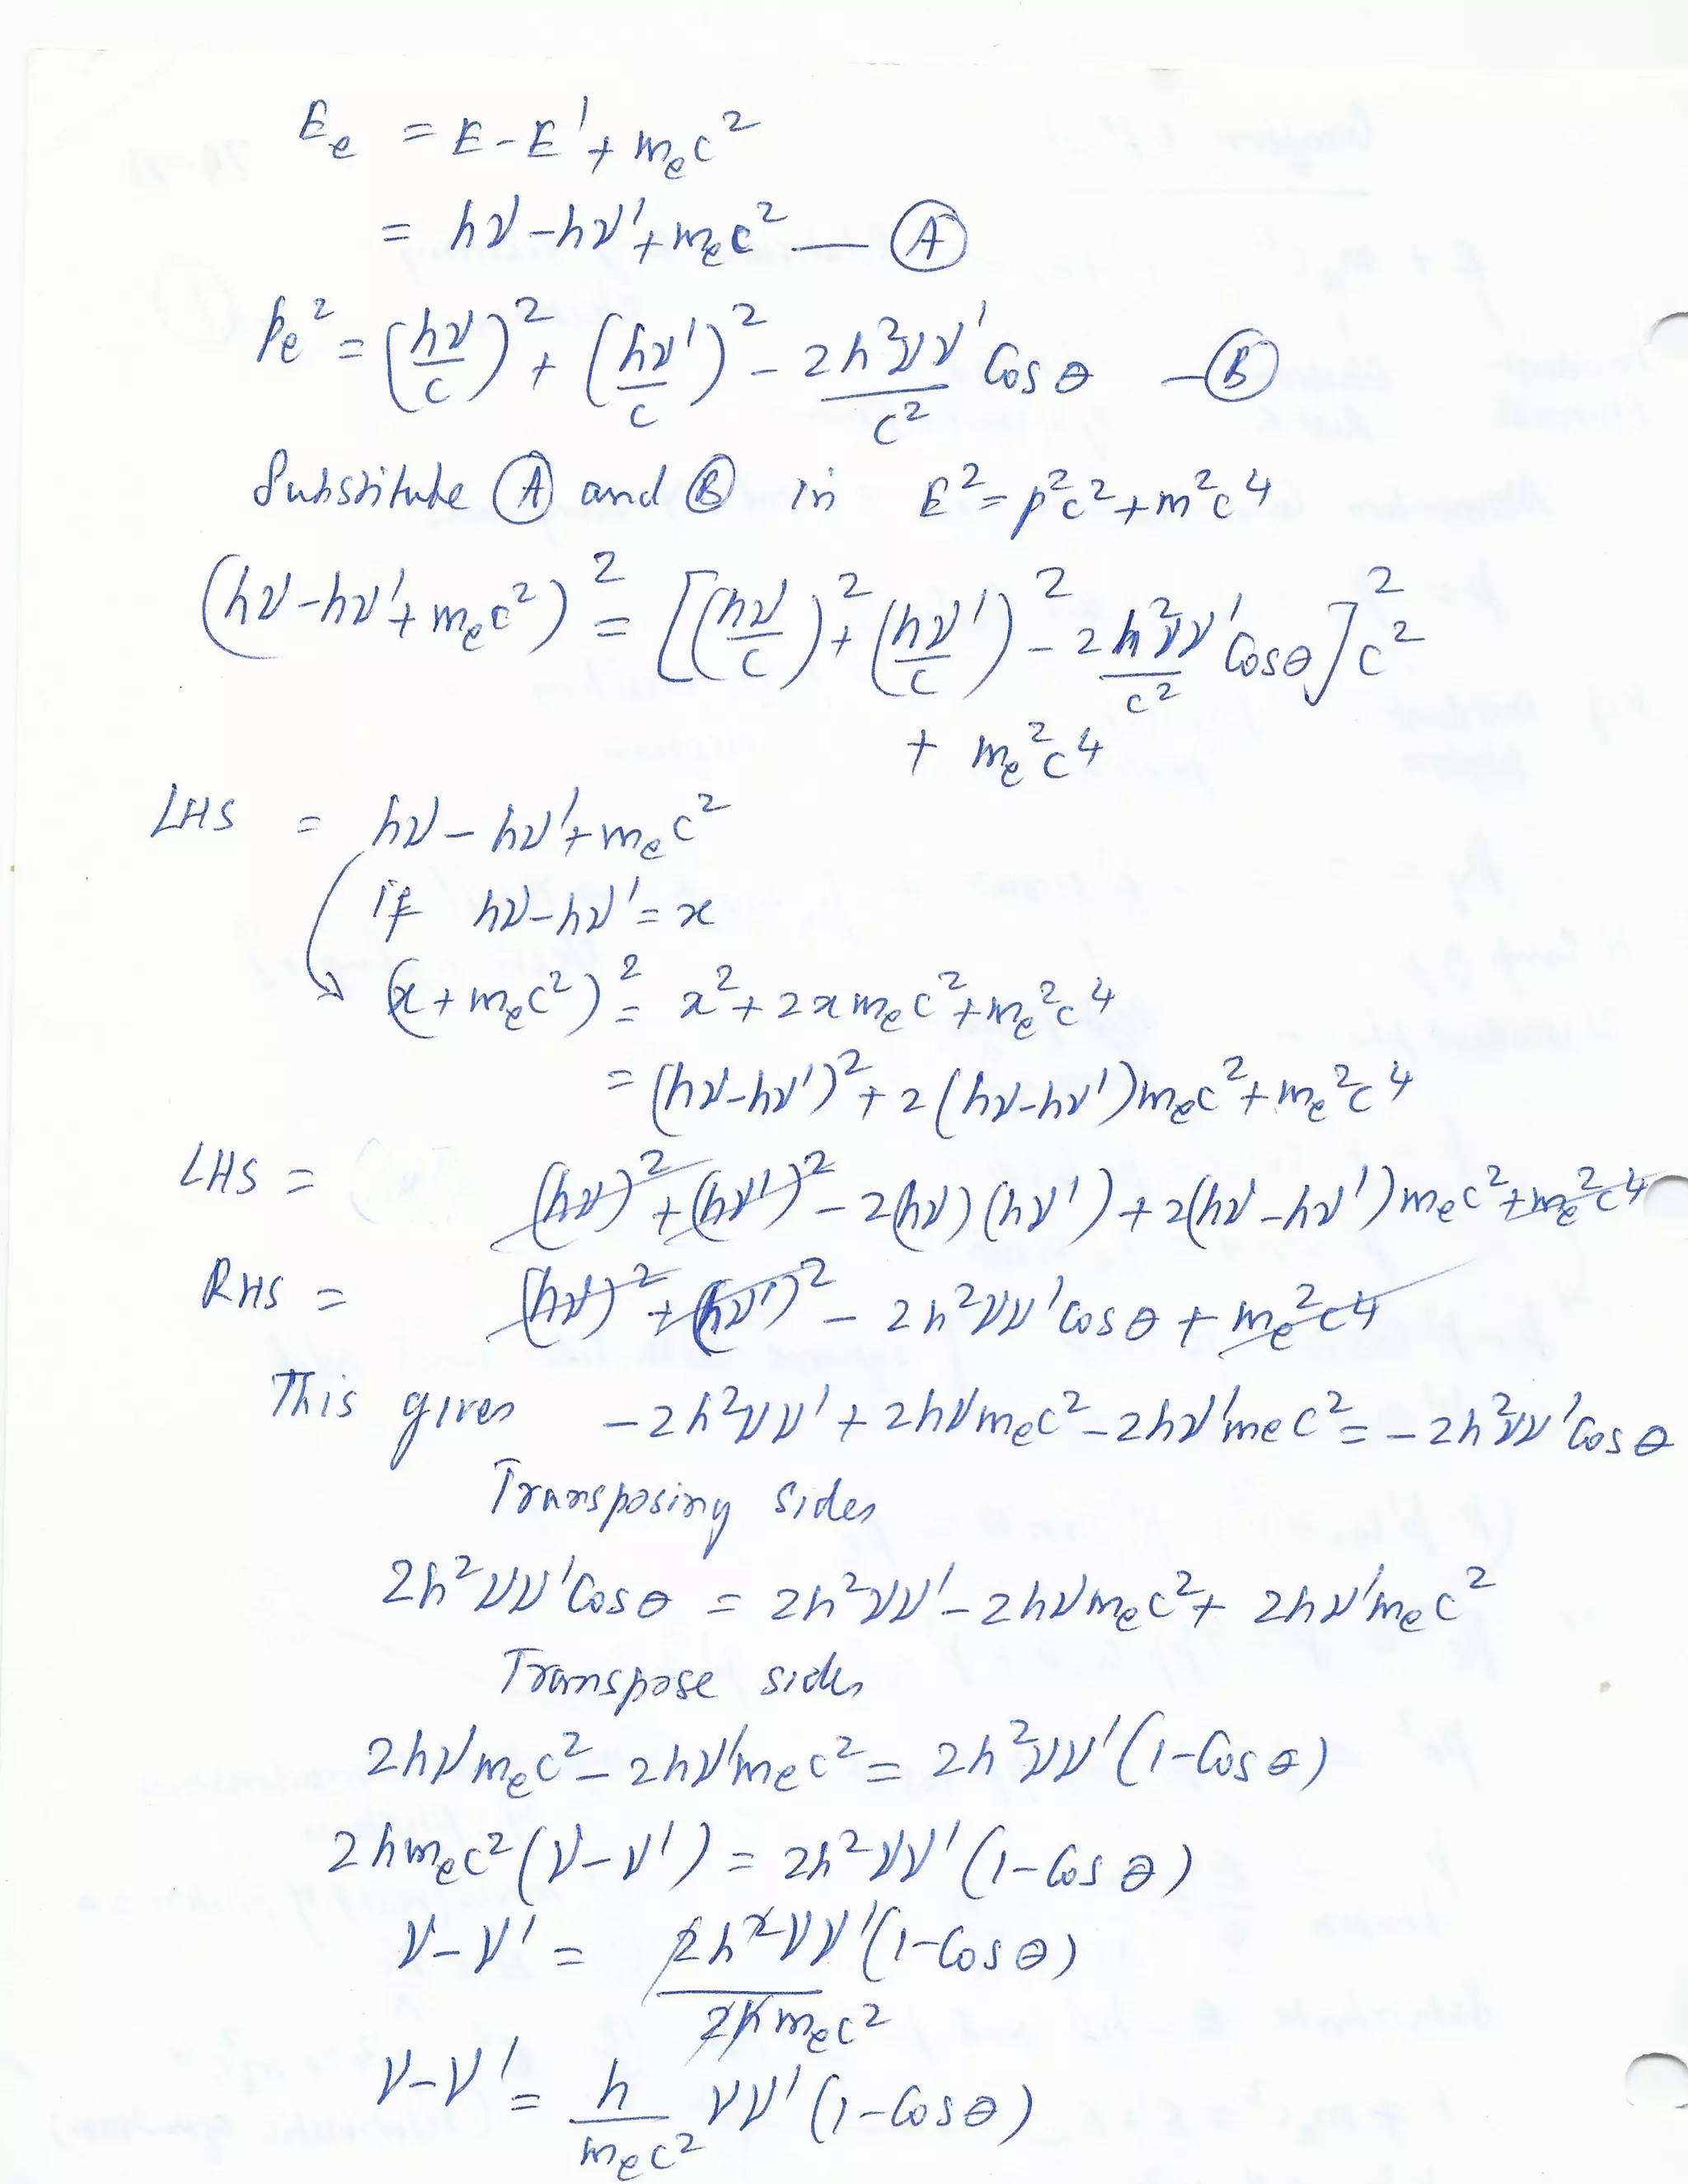 Ee = E - E' + mec²
= hν - hν' + mec² — Ⓐ
pe² = (hν/c)² + (hν'/c)² - 2h²νν'/c² Cosθ — Ⓑ
Substitute Ⓐ and Ⓑ in E² = p²c² + m²c⁴
(hν - hν' + mec²)² = [(hν/c)² + (hν'/c)² - 2h²νν'/c² Cosθ]² c²
+ me²c⁴
LHS = hν - hν' + mec²
if hν - hν' = x
(x + mec²)² = x² + 2xmec² + me²c⁴
= (hν - hν')² + 2(hν - hν')mec² + me²c⁴
LHS = (hν)² + (hν')² - 2(hν)(hν') + 2(hν - hν')mec² + me²c⁴
RHS = (hν)² + (hν')² - 2h²νν'Cosθ + me²c⁴
This gives -2h²νν' + 2hνmec² - 2hν'mec² = -2h²νν'Cosθ
Transposing sides
2h²νν'Cosθ = 2h²νν' - 2hνmec² + 2hν'mec²
Transpose sides
2hνmec² - 2hν'mec² = 2h²νν'(1 - Cosθ)
2hmec²(ν - ν') = 2h²νν'(1 - Cosθ)
ν - ν' = 2h²νν'(1 - Cosθ)
2hmec²
ν - ν' = h/mec² νν'(1 - Cosθ)